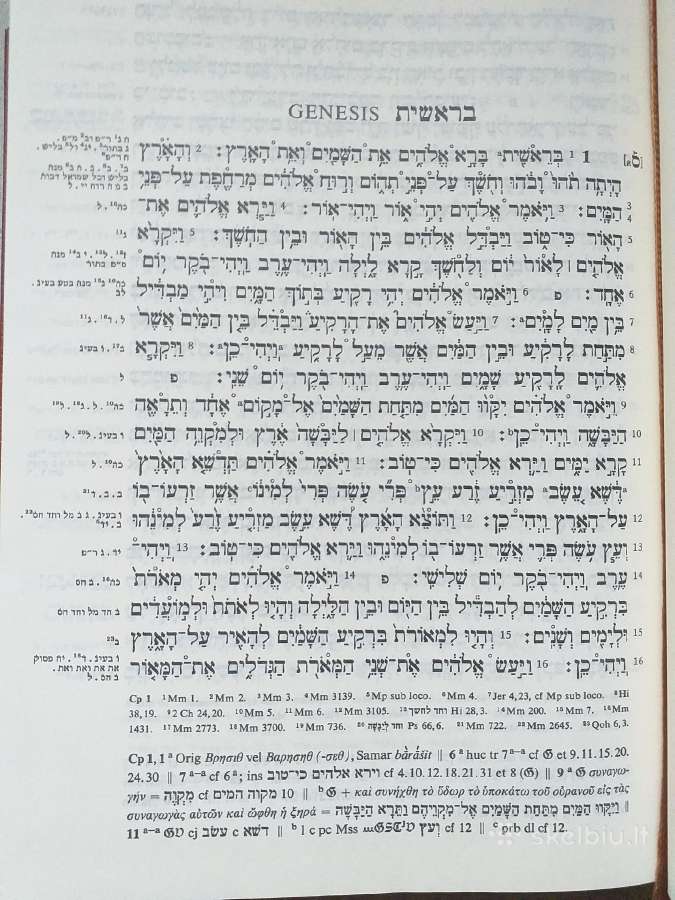 GENESIS בראשית
1 ¹ בְּרֵאשִׁ֖יתᵃ בָּרָ֣א אֱלֹהִ֑ים אֵ֥ת הַשָּׁמַ֖יִם וְאֵ֥ת הָאָֽרֶץ׃ ² וְהָאָ֗רֶץ
הָיְתָ֥ה תֹ֙הוּ֙ וָבֹ֔הוּ וְחֹ֖שֶׁךְ עַל־פְּנֵ֣י תְה֑וֹם וְר֣וּחַ אֱלֹהִ֔ים מְרַחֶ֖פֶת עַל־פְּנֵ֥י
הַמָּֽיִם׃ ³ וַיֹּ֥אמֶר אֱלֹהִ֖ים יְהִ֣י א֑וֹר וַֽיְהִי־אֽוֹר׃ ⁴ וַיַּ֧רְא אֱלֹהִ֛ים אֶת־
הָא֖וֹר כִּי־ט֑וֹב וַיַּבְדֵּ֣ל אֱלֹהִ֔ים בֵּ֥ין הָא֖וֹר וּבֵ֥ין הַחֹֽשֶׁךְ׃ ⁵ וַיִּקְרָ֨א
אֱלֹהִ֤ים ׀ לָאוֹר֙ י֔וֹם וְלַחֹ֖שֶׁךְ קָ֣רָא לָ֑יְלָה וַֽיְהִי־עֶ֥רֶב וַֽיְהִי־בֹ֖קֶר י֥וֹם
אֶחָֽד׃ פ ⁶ וַיֹּ֣אמֶר אֱלֹהִ֔ים יְהִ֥י רָקִ֖יעַ בְּת֣וֹךְ הַמָּ֑יִם וִיהִ֣י מַבְדִּ֔יל
בֵּ֥ין מַ֖יִם לָמָֽיִםᵃ׃ ⁷ וַיַּ֣עַשׂ אֱלֹהִים֮ אֶת־הָרָקִיעַ֒ וַיַּבְדֵּ֗ל בֵּ֤ין הַמַּ֙יִם֙ אֲשֶׁר֙
מִתַּ֣חַת לָרָקִ֔יעַ וּבֵ֣ין הַמַּ֔יִם אֲשֶׁ֖ר מֵעַ֣ל לָרָקִ֑יעַ ᵃוַֽיְהִי־כֵֽןᵃ׃ ⁸ וַיִּקְרָ֧א
אֱלֹהִ֛ים לָֽרָקִ֖יעַ שָׁמָ֑יִם וַֽיְהִי־עֶ֥רֶב וַֽיְהִי־בֹ֖קֶר י֥וֹם שֵׁנִֽי׃ פ
⁹ וַיֹּ֣אמֶר אֱלֹהִ֗ים יִקָּו֨וּ הַמַּ֜יִם מִתַּ֤חַת הַשָּׁמַ֙יִם֙ אֶל־מָק֣וֹםᵃ אֶחָ֔ד וְתֵרָאֶ֖ה
הַיַּבָּשָׁ֑ה וַֽיְהִי־כֵֽןᵇ׃ ¹⁰ וַיִּקְרָ֨א אֱלֹהִ֤ים ׀ לַיַּבָּשָׁה֙ אֶ֔רֶץ וּלְמִקְוֵ֥ה הַמַּ֖יִם
קָרָ֣א יַמִּ֑ים וַיַּ֥רְא אֱלֹהִ֖ים כִּי־טֽוֹב׃ ¹¹ וַיֹּ֣אמֶר אֱלֹהִ֗ים תַּֽדְשֵׁ֤א הָאָ֙רֶץ֙
ᵃדֶּ֔שֶׁא עֵ֚שֶׂבᵃ מַזְרִ֣יעַ זֶ֔רַע עֵ֣ץᵇ פְּרִ֞י עֹ֤שֶׂה פְּרִי֙ לְמִינ֔וֹᶜ אֲשֶׁ֥ר זַרְעוֹ־ב֖וֹ
עַל־הָאָ֑רֶץ וַֽיְהִי־כֵֽן׃ ¹² וַתּוֹצֵ֨א הָאָ֜רֶץ דֶּ֠שֶׁא עֵ֣שֶׂב מַזְרִ֤יעַ זֶ֙רַע֙ לְמִינֵ֔הוּ
וְעֵ֧ץ עֹֽשֶׂה־פְּרִ֛י אֲשֶׁ֥ר זַרְעוֹ־ב֖וֹ לְמִינֵ֑הוּ וַיַּ֥רְא אֱלֹהִ֖ים כִּי־טֽוֹב׃ ¹³ וַֽיְהִי־
עֶ֥רֶב וַֽיְהִי־בֹ֖קֶר י֥וֹם שְׁלִישִֽׁי׃ פ ¹⁴ וַיֹּ֣אמֶר אֱלֹהִ֗ים יְהִ֤י מְאֹרֹת֙
בִּרְקִ֣יעַ הַשָּׁמַ֔יִם לְהַבְדִּ֕יל בֵּ֥ין הַיּ֖וֹם וּבֵ֣ין הַלָּ֑יְלָה וְהָי֤וּ לְאֹתֹת֙ וּלְמ֣וֹעֲדִ֔ים
וּלְיָמִ֖ים וְשָׁנִֽים׃ ¹⁵ וְהָי֤וּ לִמְאוֹרֹת֙ בִּרְקִ֣יעַ הַשָּׁמַ֔יִם לְהָאִ֖יר עַל־הָאָ֑רֶץ
וַֽיְהִי־כֵֽן׃ ¹⁶ וַיַּ֣עַשׂ אֱלֹהִ֔ים אֶת־שְׁנֵ֥י הַמְּאֹרֹ֖ת הַגְּדֹלִ֑ים אֶת־הַמָּא֤וֹר
Cp 1 ¹Mm 1. ²Mm 2. ³Mm 3. ⁴Mm 3139. ⁵Mp sub loco. ⁶Mm 4. ⁷Jer 4,23, cf Mp sub loco. ⁸Hi
38,19. ⁹2 Ch 24,20. ¹⁰Mm 5. ¹¹Mm 6. ¹²Mm 3105. ¹³וחד לחשך Hi 28,3. ¹⁴Mm 200. ¹⁵Mm 7. ¹⁶Mm
1431. ¹⁷Mm 2773. ¹⁸Mm 3700. ¹⁹Mm 736. ²⁰וחד לַיַּבָּשָׁה Ps 66,6. ²¹Mm 722. ²²Mm 2645. ²³Qoh 6,3.
Cp 1, 1 ᵃ Orig Βρησιθ vel Βαρησηθ (-σεθ), Samar bārāšit ‖ 6 ᵃ huc tr 7ᵃ⁻ᵃ cf 𝔊 et 9.11.15.20.
24.30 ‖ 7 ᵃ⁻ᵃ cf 6ᵃ; ins וירא אלהים כי־טוב cf 4.10.12.18.21.31 et 8 (𝔊) ‖ 9 ᵃ 𝔊 συναγω-
γήν = מִקְוֵה cf 10 מקוה המים ‖ ᵇ 𝔊 + καὶ συνήχθη τὸ ὕδωρ τὸ ὑποκάτω τοῦ οὐρανοῦ εἰς τὰς
συναγωγὰς αὐτῶν καὶ ὤφθη ἡ ξηρά = וַיִּקָּווּ הַמַּיִם מִתַּחַת הַשָּׁמַיִם אֶל־מִקְוֵיהֶם וַתֵּרָא הַיַּבָּשָׁה ‖
11 ᵃ⁻ᵃ 𝔊𝔙 cj דשׁא c עשׂב ‖ ᵇ l c pc Mss ⅏𝔊𝔖𝔗ᴶ𝔙 וְעֵץ cf 12 ‖ ᶜ prb dl cf 12.
skelbiu.lt